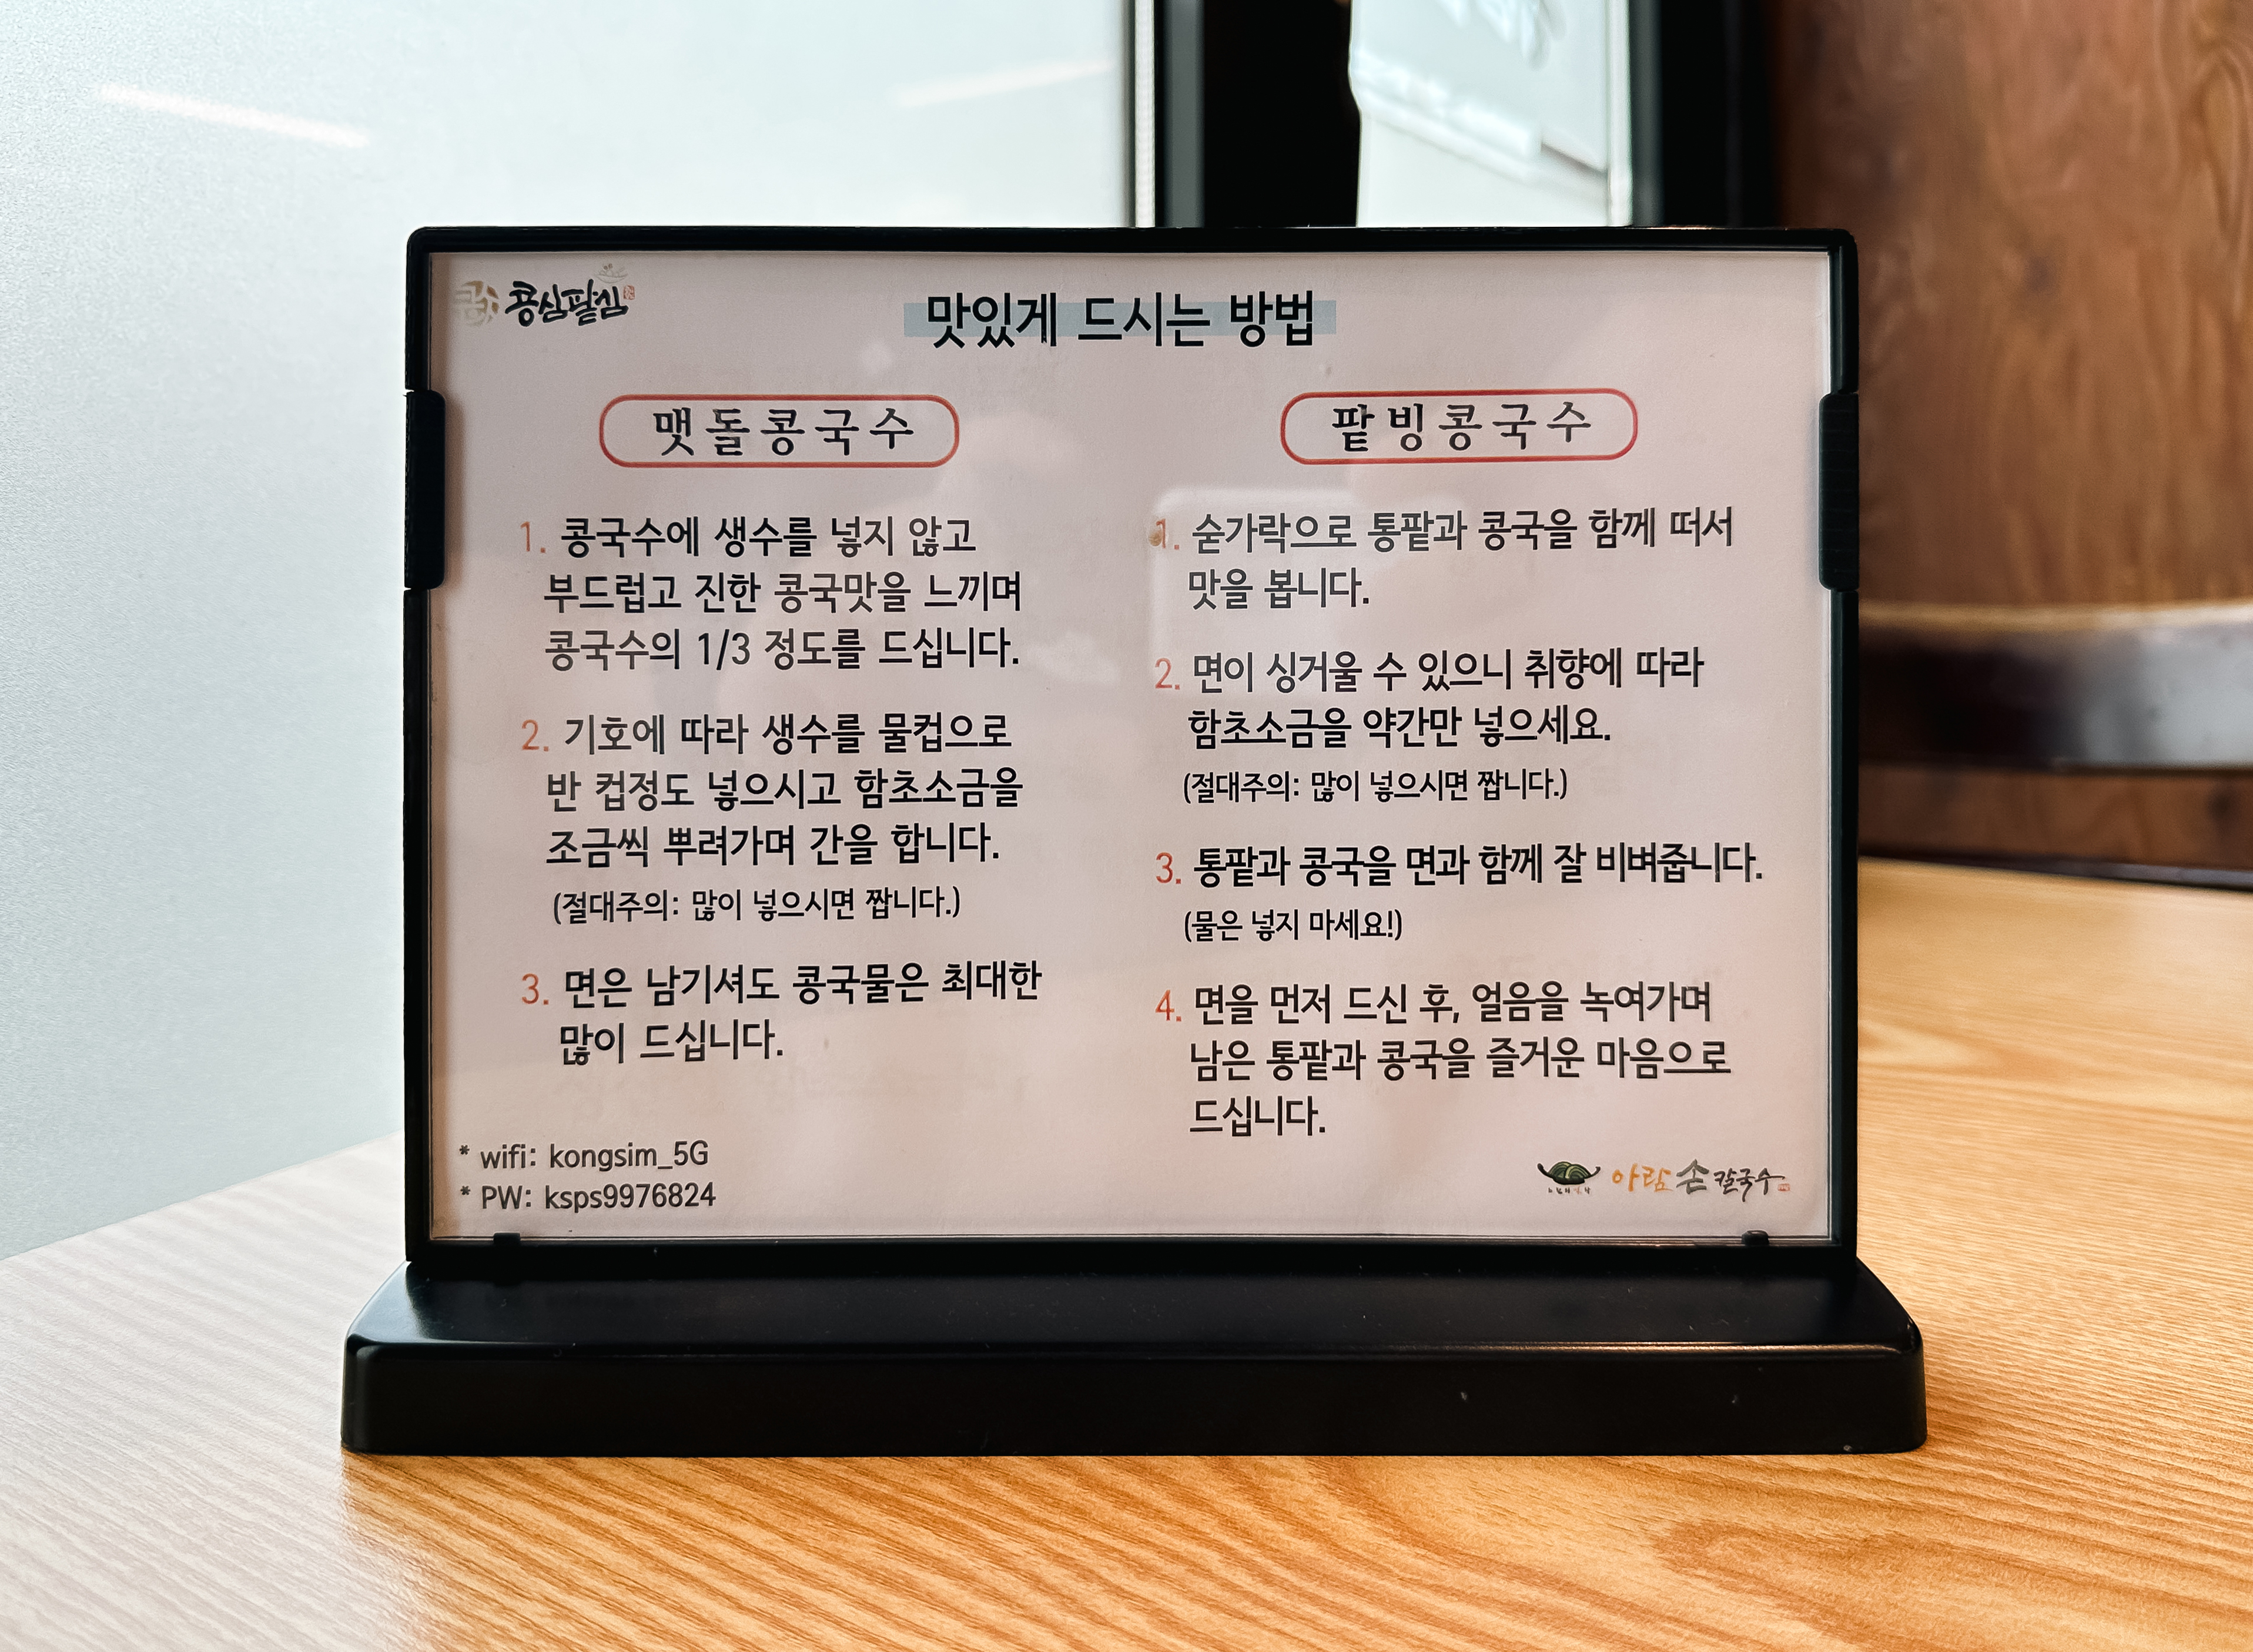 콩심팥심
맛있게 드시는 방법
맷돌콩국수
1. 콩국수에 생수를 넣지 않고
부드럽고 진한 콩국맛을 느끼며
콩국수의 1/3 정도를 드십니다.
2. 기호에 따라 생수를 물컵으로
반 컵정도 넣으시고 함초소금을
조금씩 뿌려가며 간을 합니다.
(절대주의: 많이 넣으시면 짭니다.)
3. 면은 남기셔도 콩국물은 최대한
많이 드십니다.
* wifi: kongsim_5G
* PW: ksps9976824
팥빙콩국수
1. 숟가락으로 통팥과 콩국을 함께 떠서
맛을 봅니다.
2. 면이 싱거울 수 있으니 취향에 따라
함초소금을 약간만 넣으세요.
(절대주의: 많이 넣으시면 짭니다.)
3. 통팥과 콩국을 면과 함께 잘 비벼줍니다.
(물은 넣지 마세요!)
4. 면을 먼저 드신 후, 얼음을 녹여가며
남은 통팥과 콩국을 즐거운 마음으로
드십니다.
아람손칼국수